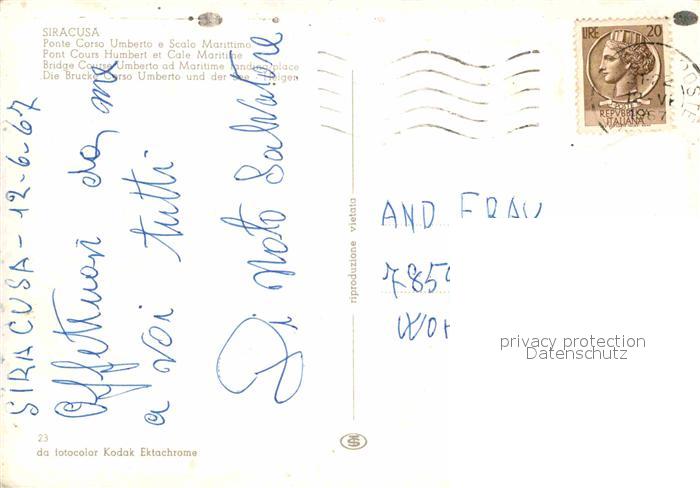 SIRACUSA
Ponte Corso Umberto e Scalo Marittimo
Pont Cours Humbert et Cale Maritime
Bridge Course Umberto ad Maritime landing place
Die Brucke Corso Umberto und der See
SIRACUSA - 12-6-67
Affettuosi da me
a voi tutti
Di Noto Salvatore
23
da fotocolor Kodak Ektachrome
riproduzione vietata
LIRE 20
REPUBBLICA
ITALIANA
1967
AND FRAU
785
WO
privacy protection
Datenschutz